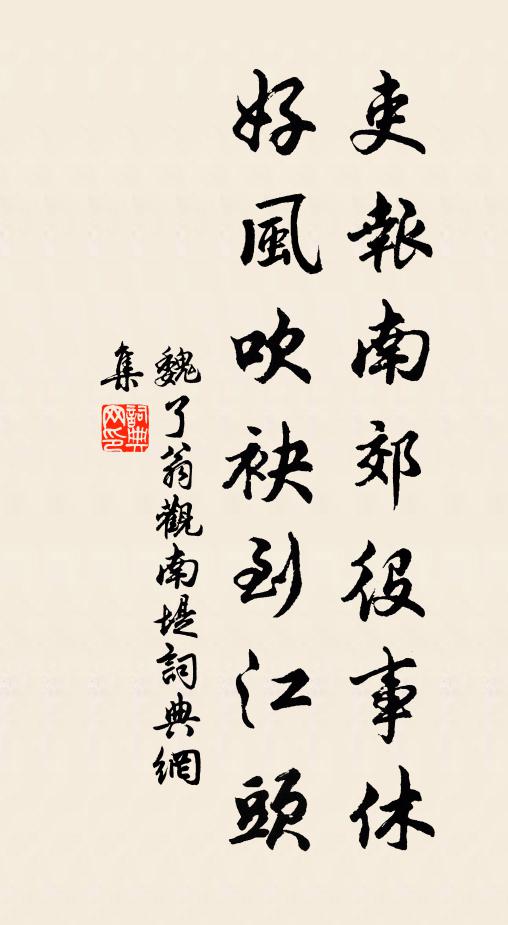 吏報南郊役事休
好風吹袂到江頭
魏了翁觀南堤詞典網
集
詞典
网印